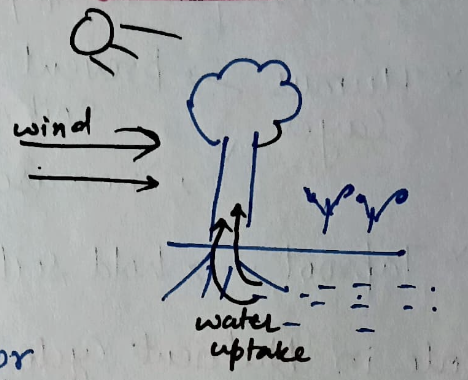 wind
water
uptake
or